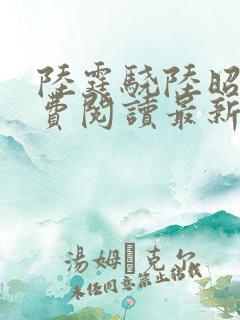 陸霆驍陸昭
費閱讀最新
湯姆·克尔
未经同意禁止转载